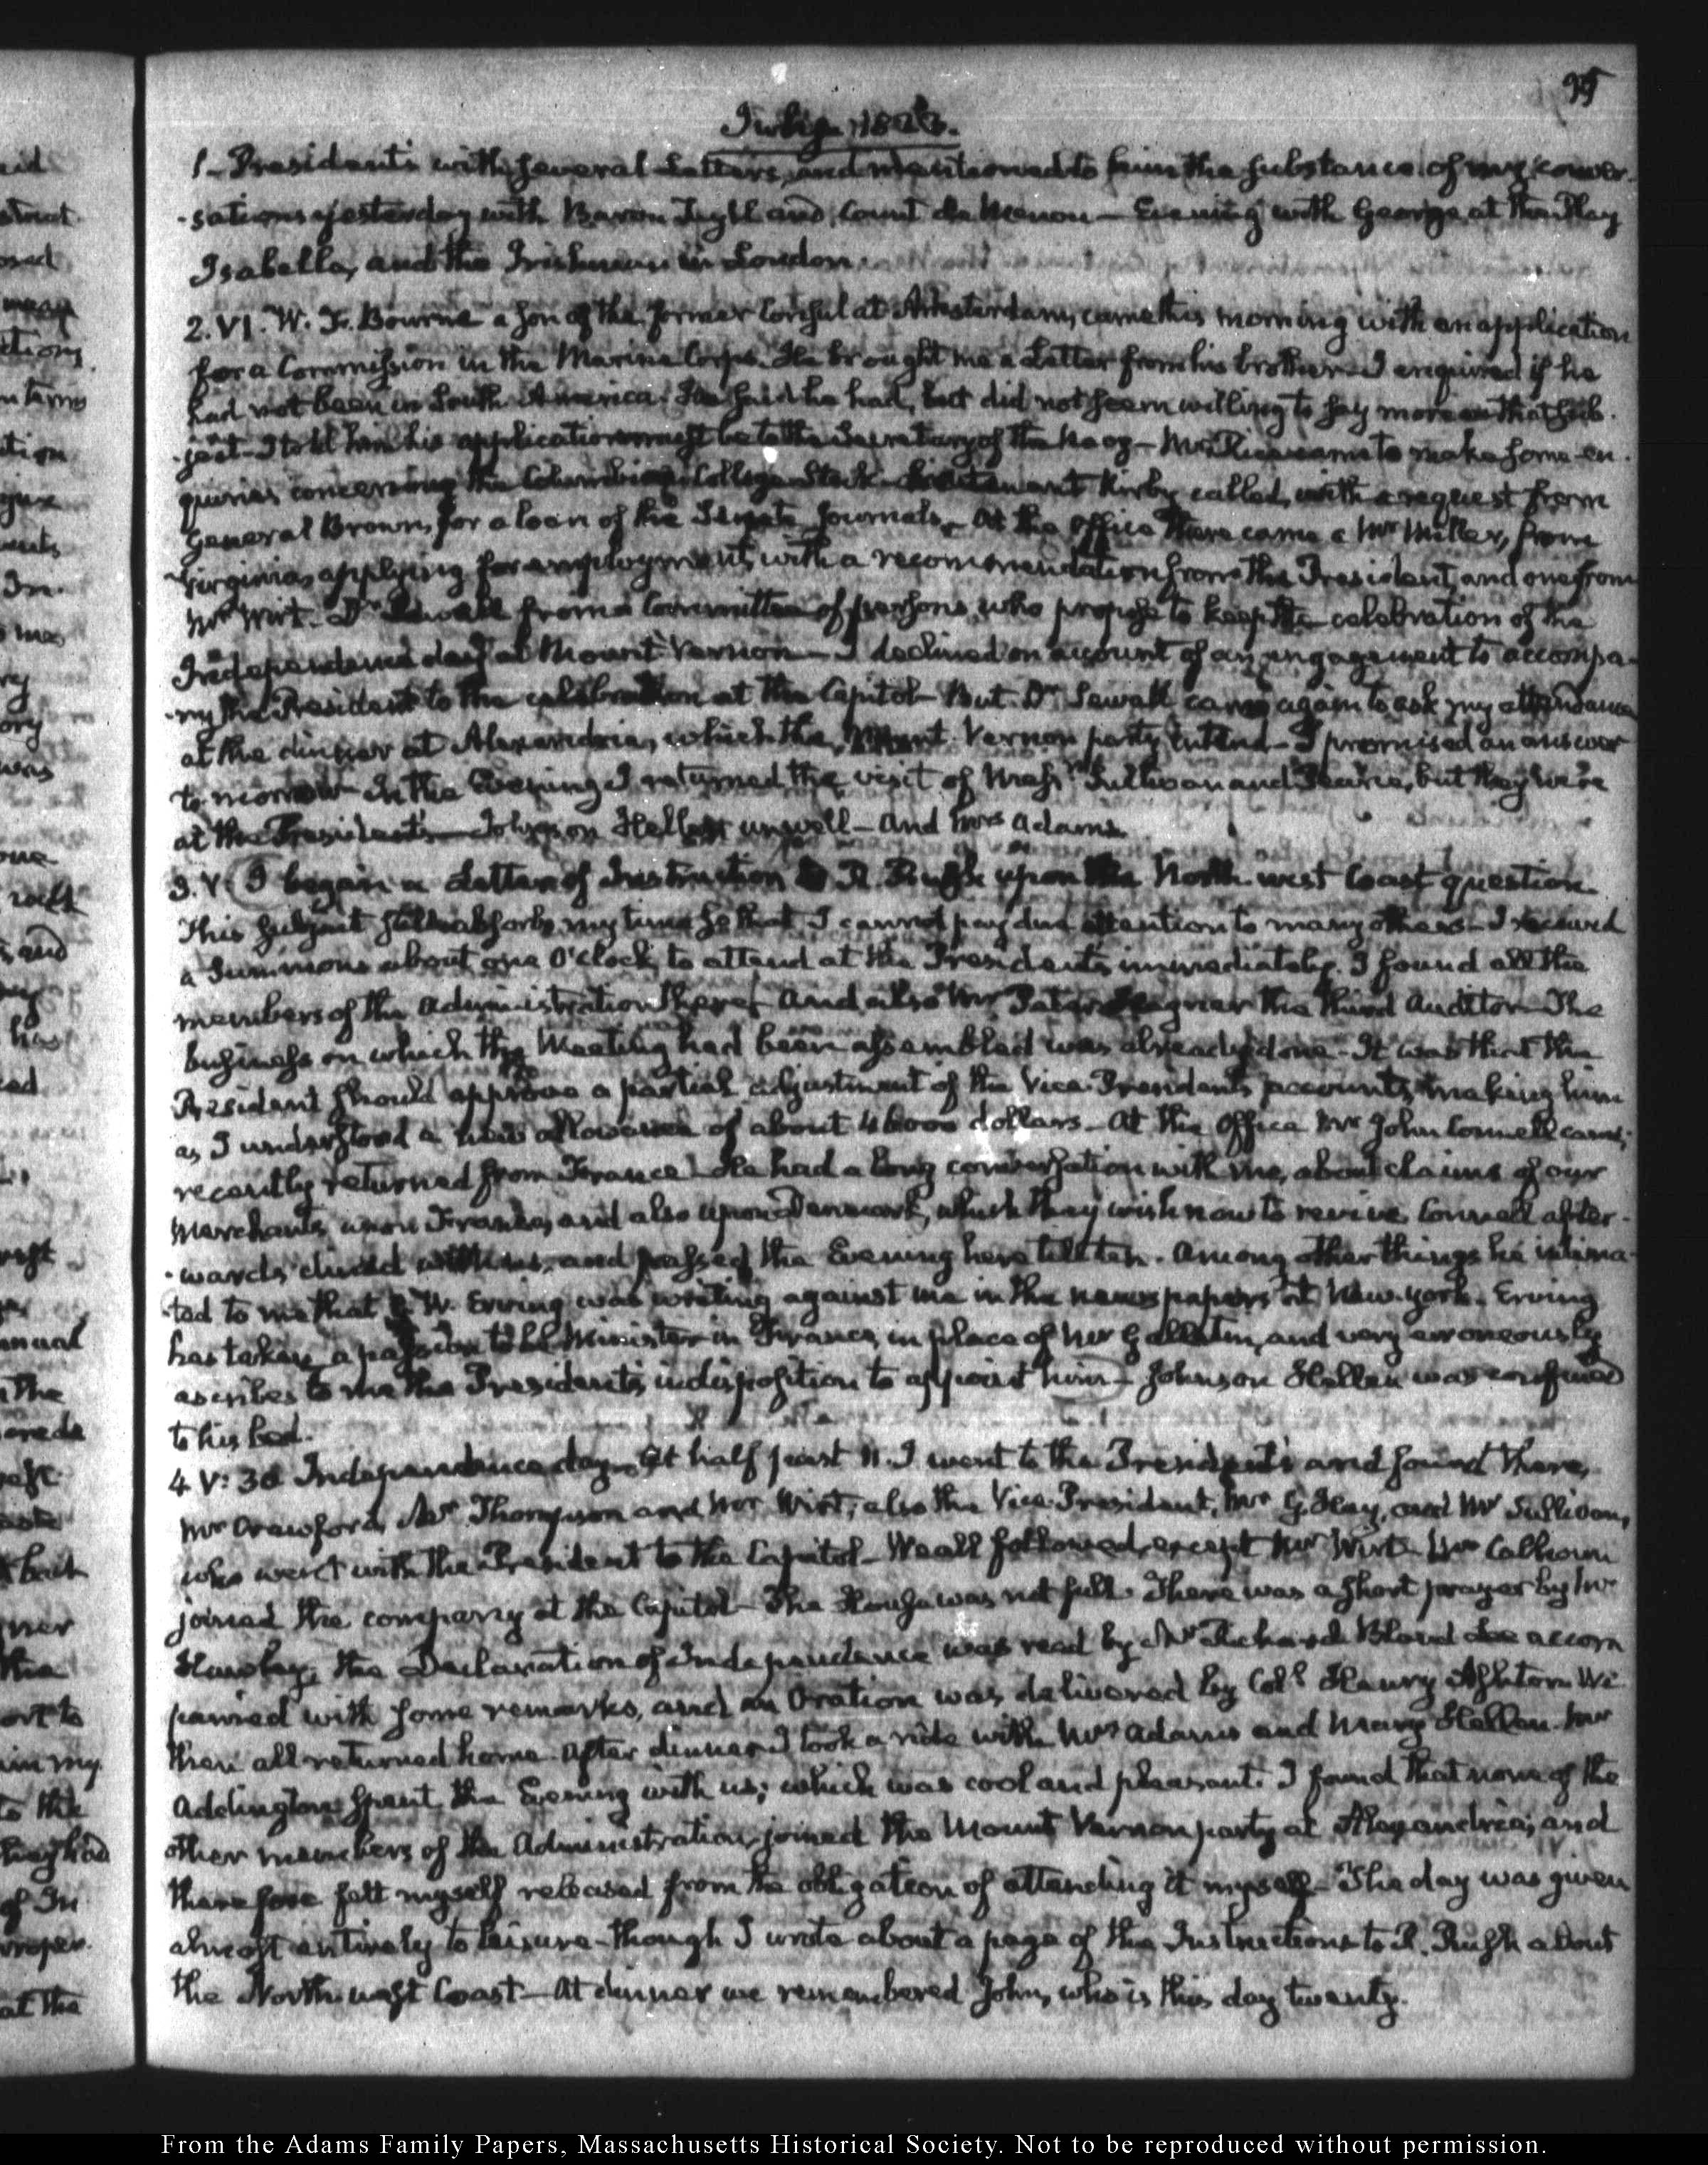 95
July 1823.
1. President's with several Letters, and mentioned to him the substance of my conver-
-sations yesterday with Baron Tuyll and Count de Menou — Evening with George at the Play
Isabella, and the Irishman in London.
2. VI. W. F. Bourne a son of the former Consul at Amsterdam, came this morning with an application
for a Commission in the Marine Corps. He brought me a Letter from his brother — I enquired if he
had not been in South America. He said he had, but did not seem willing to say more on that sub-
-ject — I told him his application must be to the Secretary of the Navy — Mr Rice came to make some en-
quiries concerning the Columbian College Stock — Lieutenant Kirby called, with a request from
General Brown, for a loan of the Senate Journals. At the Office there came a Mr Miller, from
Virginia, applying for employment, with a recommendation from the President, and one from
Mr Wirt — Dr Sewall from a Committee of persons who propose to keep the celebration of the
Independence day at Mount Vernon — I declined on account of an engagement to accompa-
-ny the President to the celebration at the Capitol — But Dr Sewall came again to ask my attendance
at the dinner at Alexandria, which the Mount Vernon party intend — I promised an answer
to-morrow — In the Evening I returned the visit of Messrs Sullivan and Pearce, but they were
at the President's — Johnson Hellen unwell — and Mrs Adams
3. V. I began a Letter of Instruction to R. Rush upon the North-west Coast question
This subject still absorbs my time so that I cannot pay due attention to many others — I received
a Summons about one O'Clock, to attend at the President's immediately. I found all the
members of the Administration there, and also Mr Peter Hagner the third Auditor — The
business on which the Meeting had been assembled was already done — It was that the
President should approve a partial adjustment of the Vice-President's accounts, making him
as I understood a new allowance of about 46000 dollars — At the Office Mr John Connell came,
recently returned from France — He had a long conversation with me, about claims of our
Merchants upon France, and also upon Denmark, which they wish now to revive. Connell after-
-wards dined with us, and passed the Evening here till ten. Among other things he intima-
-ted to me that G. W. Erving was writing against me in the newspapers at New-York. Erving
has taken a passion to be Minister in France, in place of Mr Gallatin, and very erroneously
ascribes to me the President's indisposition to appoint him — Johnson Hellen was confined
to his bed.
4. V: 30 Independence day. At half past 11. I went to the President's and found there,
Mr Crawford, Mr Thompson and Mr Wirt; also the Vice-President, Mr G. Hay, and Mr Sullivan,
who went with the President to the Capitol — We all followed, except Mr Wirt — Mr Calhoun
joined the company at the Capitol — The House was not full. There was a short prayer by Mr
Hawley, the Declaration of Independence was read by Mr Richard Bland Lee accom
panied with some remarks, and an Oration was delivered by Coll Henry Ashton. We
then all returned home. After dinner I took a ride with Mrs Adams and Mary Hellen. Mr
Addington spent the Evening with us; which was cool and pleasant. I found that none of the
other members of the Administration joined the Mount Vernon party at Alexandria; and
therefore felt myself released from the obligation of attending it myself — The day was given
almost entirely to leisure — though I wrote about a page of the Instructions to R. Rush about
the North-west Coast — At dinner we remembered John, who is this day twenty.
From the Adams Family Papers, Massachusetts Historical Society. Not to be reproduced without permission.